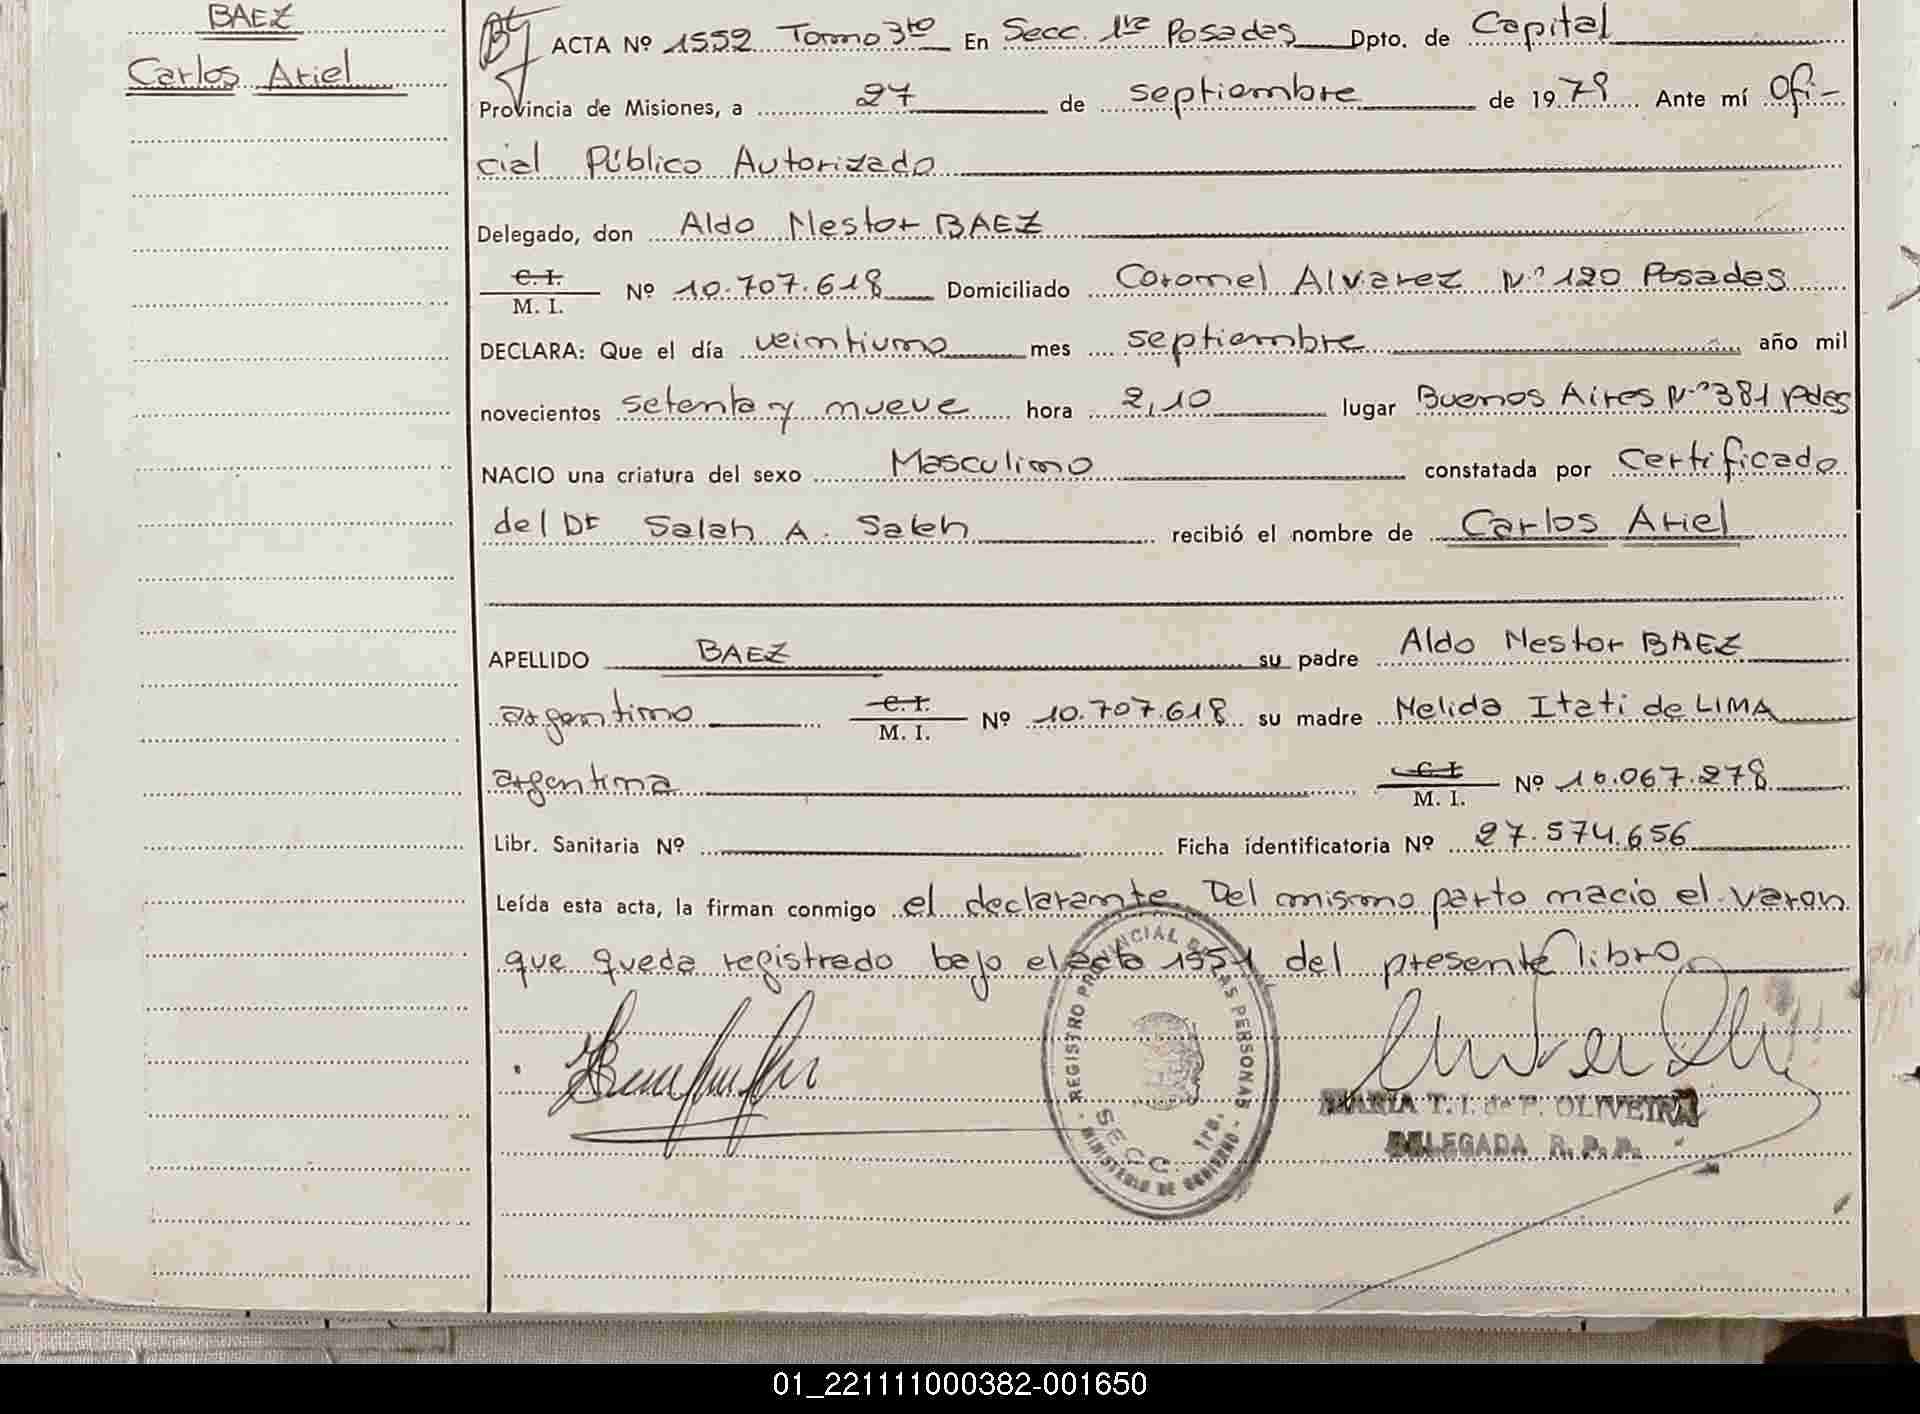 BAEZ
Carlos Ariel
ACTA Nº 1552 Tomo 3ro En Secc. 1ra Posadas Dpto. de Capital
Provincia de Misiones, a 27 de septiembre de 1979 Ante mí Ofi-
cial Público Autorizado
Delegado, don Aldo Nestor BAEZ
C. I.
M. I. Nº 10.707.618 Domiciliado Coronel Alvarez Nº 120 Posadas
DECLARA: Que el día veintiuno mes septiembre año mil
novecientos setenta y nueve hora 2,10 lugar Buenos Aires Nº 381 Pdas
NACIO una criatura del sexo Masculino constatada por Certificado
del Dr Salah A. Saleh recibió el nombre de Carlos Ariel
APELLIDO BAEZ su padre Aldo Nestor BAEZ
argentino C. I. M. I. Nº 10.707.618 su madre Nelida Itati de LIMA
argentina C. I. M. I. Nº 16.067.278
Libr. Sanitaria Nº Ficha identificatoria Nº 27.574.656
Leída esta acta, la firman conmigo el declarante Del mismo parto nacio el varon
que queda registrado bajo el acta 1551 del presente libro
REGISTRO PROVINCIAL DE LAS PERSONAS
SECC. 1ra.
MINISTERIO DE GOBIERNO
MARIA T. I. de P. OLIVEIRA
DELEGADA R. P. P.
01_221111000382-001650